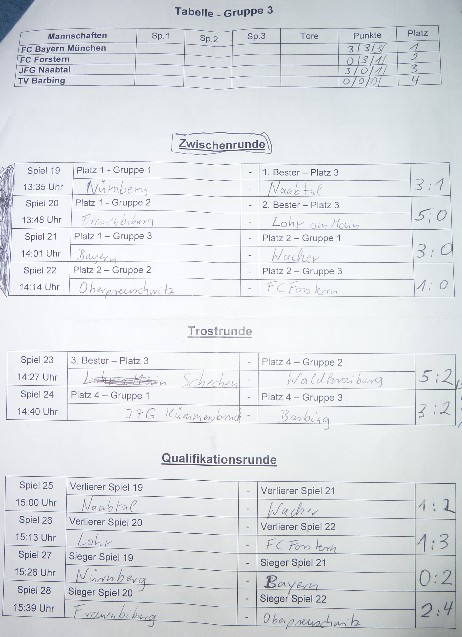 Tabelle - Gruppe 3
Mannschaften Sp.1 Sp.2 Sp.3 Tore Punkte Platz
FC Bayern München 3/3/3/ 1
FC Forstern 0/3/1/ 2
JFG Naabtal 3/0/1/ 3
TV Barbing 0/0/0/ 4
Zwischenrunde
Spiel 19 Platz 1 - Gruppe 1 - 1. Bester – Platz 3
13:35 Uhr Nürnberg Naabtal 3:1
Spiel 20 Platz 1 - Gruppe 2 - 2. Bester – Platz 3
13:48 Uhr Frauenbiburg Lohr am Main 5:0
Spiel 21 Platz 1 – Gruppe 3 - Platz 2 – Gruppe 1
14:01 Uhr Bayern Wacker 3:0
Spiel 22 Platz 2 – Gruppe 2 - Platz 2 – Gruppe 3
14:14 Uhr FC Forstern 1:0
Trostrunde
Spiel 23 3. Bester – Platz 3 - Platz 4 – Gruppe 2
14:27 Uhr Schechen Waldkraiburg 5:2
Spiel 24 Platz 4 – Gruppe 1 - Platz 4 – Gruppe 3
14:40 Uhr JFG Barbing 3:2
Qualifikationsrunde
Spiel 25 Verlierer Spiel 19 - Verlierer Spiel 21
15:00 Uhr Naabtal Wacker 1:2
Spiel 26 Verlierer Spiel 20 - Verlierer Spiel 22
15:13 Uhr Lohr FC Forstern 1:3
Spiel 27 Sieger Spiel 19 - Sieger Spiel 21
15:26 Uhr Nürnberg Bayern 0:2
Spiel 28 Sieger Spiel 20 - Sieger Spiel 22
15:39 Uhr Frauenbiburg 2:4